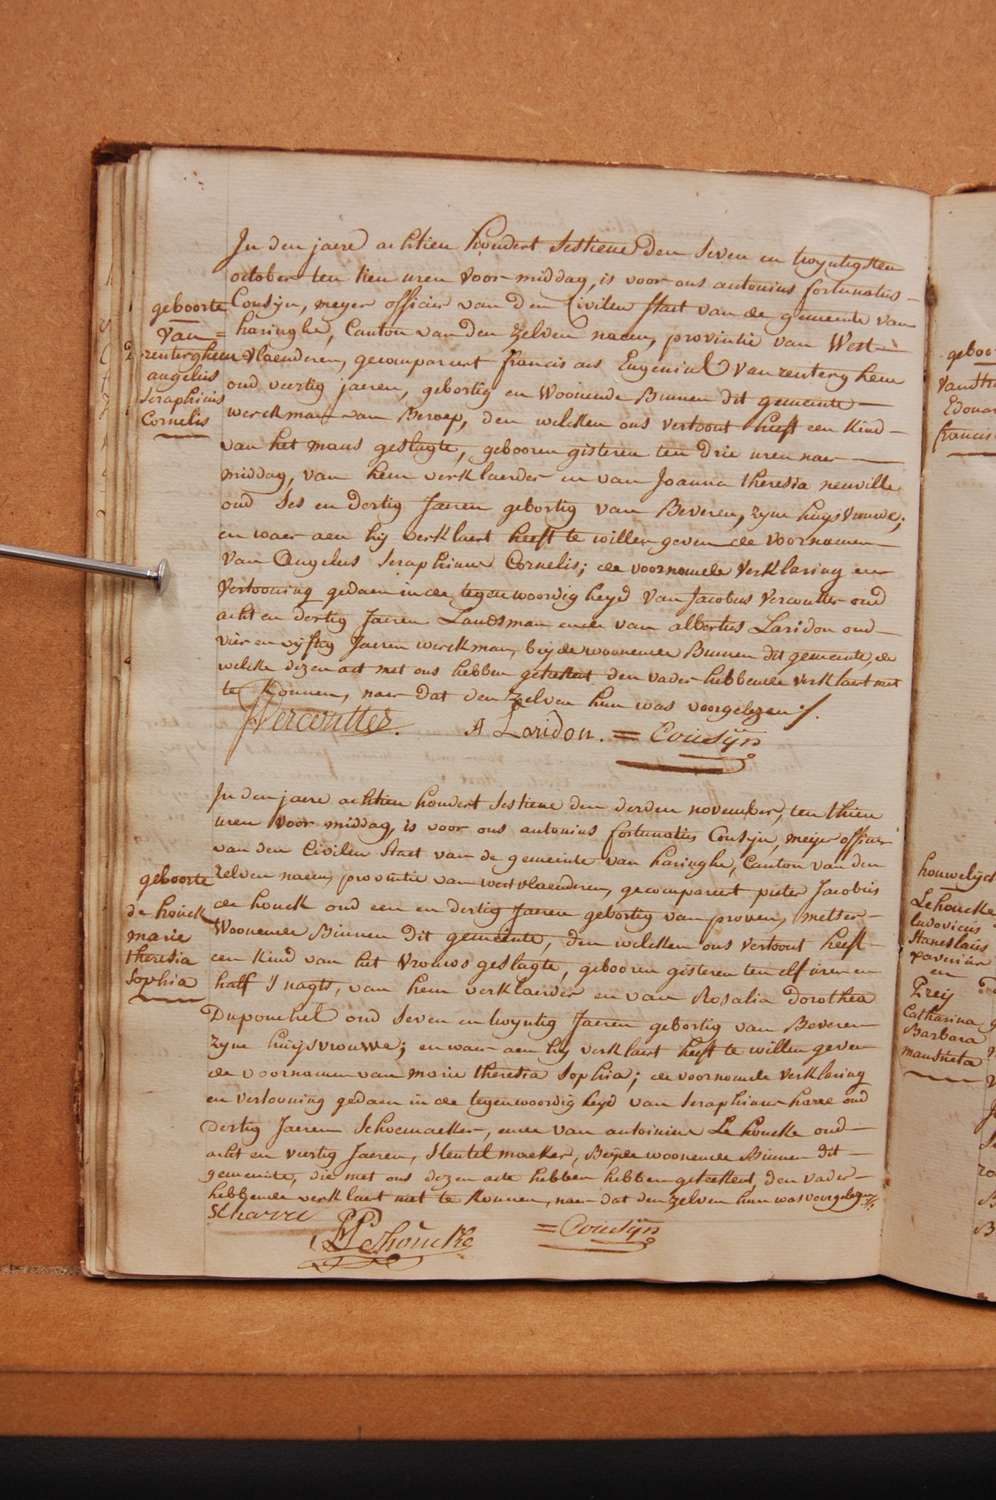 In den jaere achtien hondert sestiene den seven en twyntigsten
october ten tien uren voor middag, is voor ons antonius fortunatus
Cousijn, meyer officier van den Civilen staet van de gemeente van
haringhe, Canton van den zelven naem, provintie van West
vlaenderen, gecompareert francis Eugenius Vanrenterghem
oud veertig jaeren, gebortig en Woonende Binnen dit gemeente
werckman van Beroep, den welcken ons vertoont heeft een kind
van het mans geslagte, gebooren gisteren ten drie uren naer
middag, van hem verklaerder en van Joanna theresia neuville
oud ses en dertig Jaeren gebortig van Beveren, zyne huysvrouwe;
en waer aen hy verklaert heeft te willen geven de voornamen
Van Angelus Seraphinus Cornelis; de voornoemde verklaring en
Vertooning gedaen in de tegenwoordigheyd van Jacobus Vercoutter oud
acht en dertig Jaeren Landsman ende van albertus Laridon oud
vier en vijftig Jaeren werckman, beyde woonende Binnen dit gemeente, de
welcke dezen act met ons hebben geteekent den vader hebbende verklaert niet
te konnen, naer dat den zelven hun was voorgelezen ./.
JVercoutter. A Laridon. = Cousijn
geboorte
Van =
renterghem
angelus
Seraphinus
Cornelis
In den jaere achtien hondert sestiene den derden november, ten thien
uren voor middag, is voor ons antonius fortunatus Cousijn, meyer officier
van den Civilen Staet van de gemeente van haringhe, Canton van den
zelven naem, provintie van westvlaenderen, gecompareert pieter Jacobus
de houck oud een en dertig Jaeren gebortig van proven, metser
Woonende Binnen dit gemeente, den welcken ons vertoont heeft
een kind van het vrouws geslagte, gebooren gisteren ten elf uren en
half s nagts, van hem verklaerder en van Rosalia Dorothea
Dupouchel oud seven en twyntig Jaeren gebortig van Beveren
zyne huijsvrouwe; en waer aen hy verklaert heeft te willen geven
de voornamen van marie theresia Sophia; de voornoemde verklaring
en vertooning gedaen in de tegenwoordigheyd van Seraphinus harre oud
dertig Jaeren Schoemaeker, ende van antoinius Le houcke oud
acht en veertig Jaeren, Sleutel maeker, Beyde woonende Binnen dit
gemeente, die met ons dezen acte hebben hebben geteekent, den vader
hebbende verklaert niet te konnen, naer dat den zelven hun was voorgelezen
S harre
Lehoucke = Cousijn
geboorte
de houck
marie
theresia
Sophia
geboor
Vanstr
Edouar
francis
houwelijck
Lehoucke
ludovicus
Staneslaus
xaverius
en
Preij
Catharina
Barbara